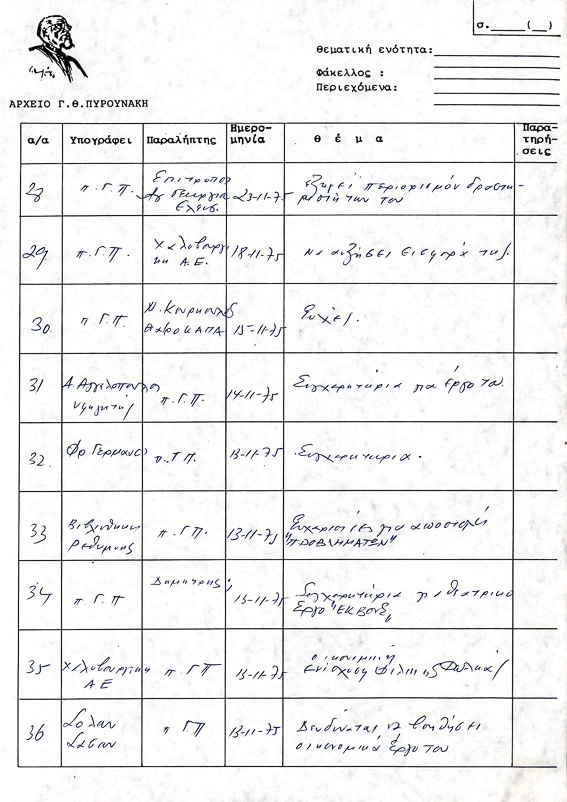 σ.____(__)
θεματική ενότητα:
Φάκελλος :
Περιεχόμενα:
ΑΡΧΕΙΟ Γ.Θ.ΠΥΡΟΥΝΑΚΗ
α/α Υπογράφει Παραλήπτης Ημερο-μηνία θ έ μ α Παρα-τηρή-σεις
28 π.Γ.Π. Επιτροπο
Αγ Γεωργίου 23-11-75 ζητεί περιορισμόν δραστη-
Ελευσ. ριοτήτων του
29 π.Γ.Π. Χαλυβουργι
κη Α.Ε. 18-11-75 να αυξήσει εισφορά της.
30 π.Γ.Π. Ν. 15-11-75 Ευχές.
31 Α Αγγελοπουλου
π.Γ.Π. 14-11-75 Συγχαρητήρια για έργο του
32 Φρ. Γερμανος π.Γ.Π. 13-11-75 Συγχαρητήρια.
33 Βιβλιοθηκη
Ρεθυμνης π.Γ.Π. 13-11-75 Ευχαριστίες για αποστολή
"ΠΡΟΒΛΗΜΑΤΩΝ"
34 π.Γ.Π Δημητρης; 13-11-75 Συγχαρητήρια για θεατρικό
έργο "ΕΚΒΟΝΕ"
35 Χαλυβουργικη
Α Ε π.Γ.Π 13-11-75 οικονομική
ενίσχυση Φιλικής Φωλιάς
36 Σολων
π Γ.Π 13-11-75 Δεν δύναται να βοηθήσει
οικονομικά έργο του